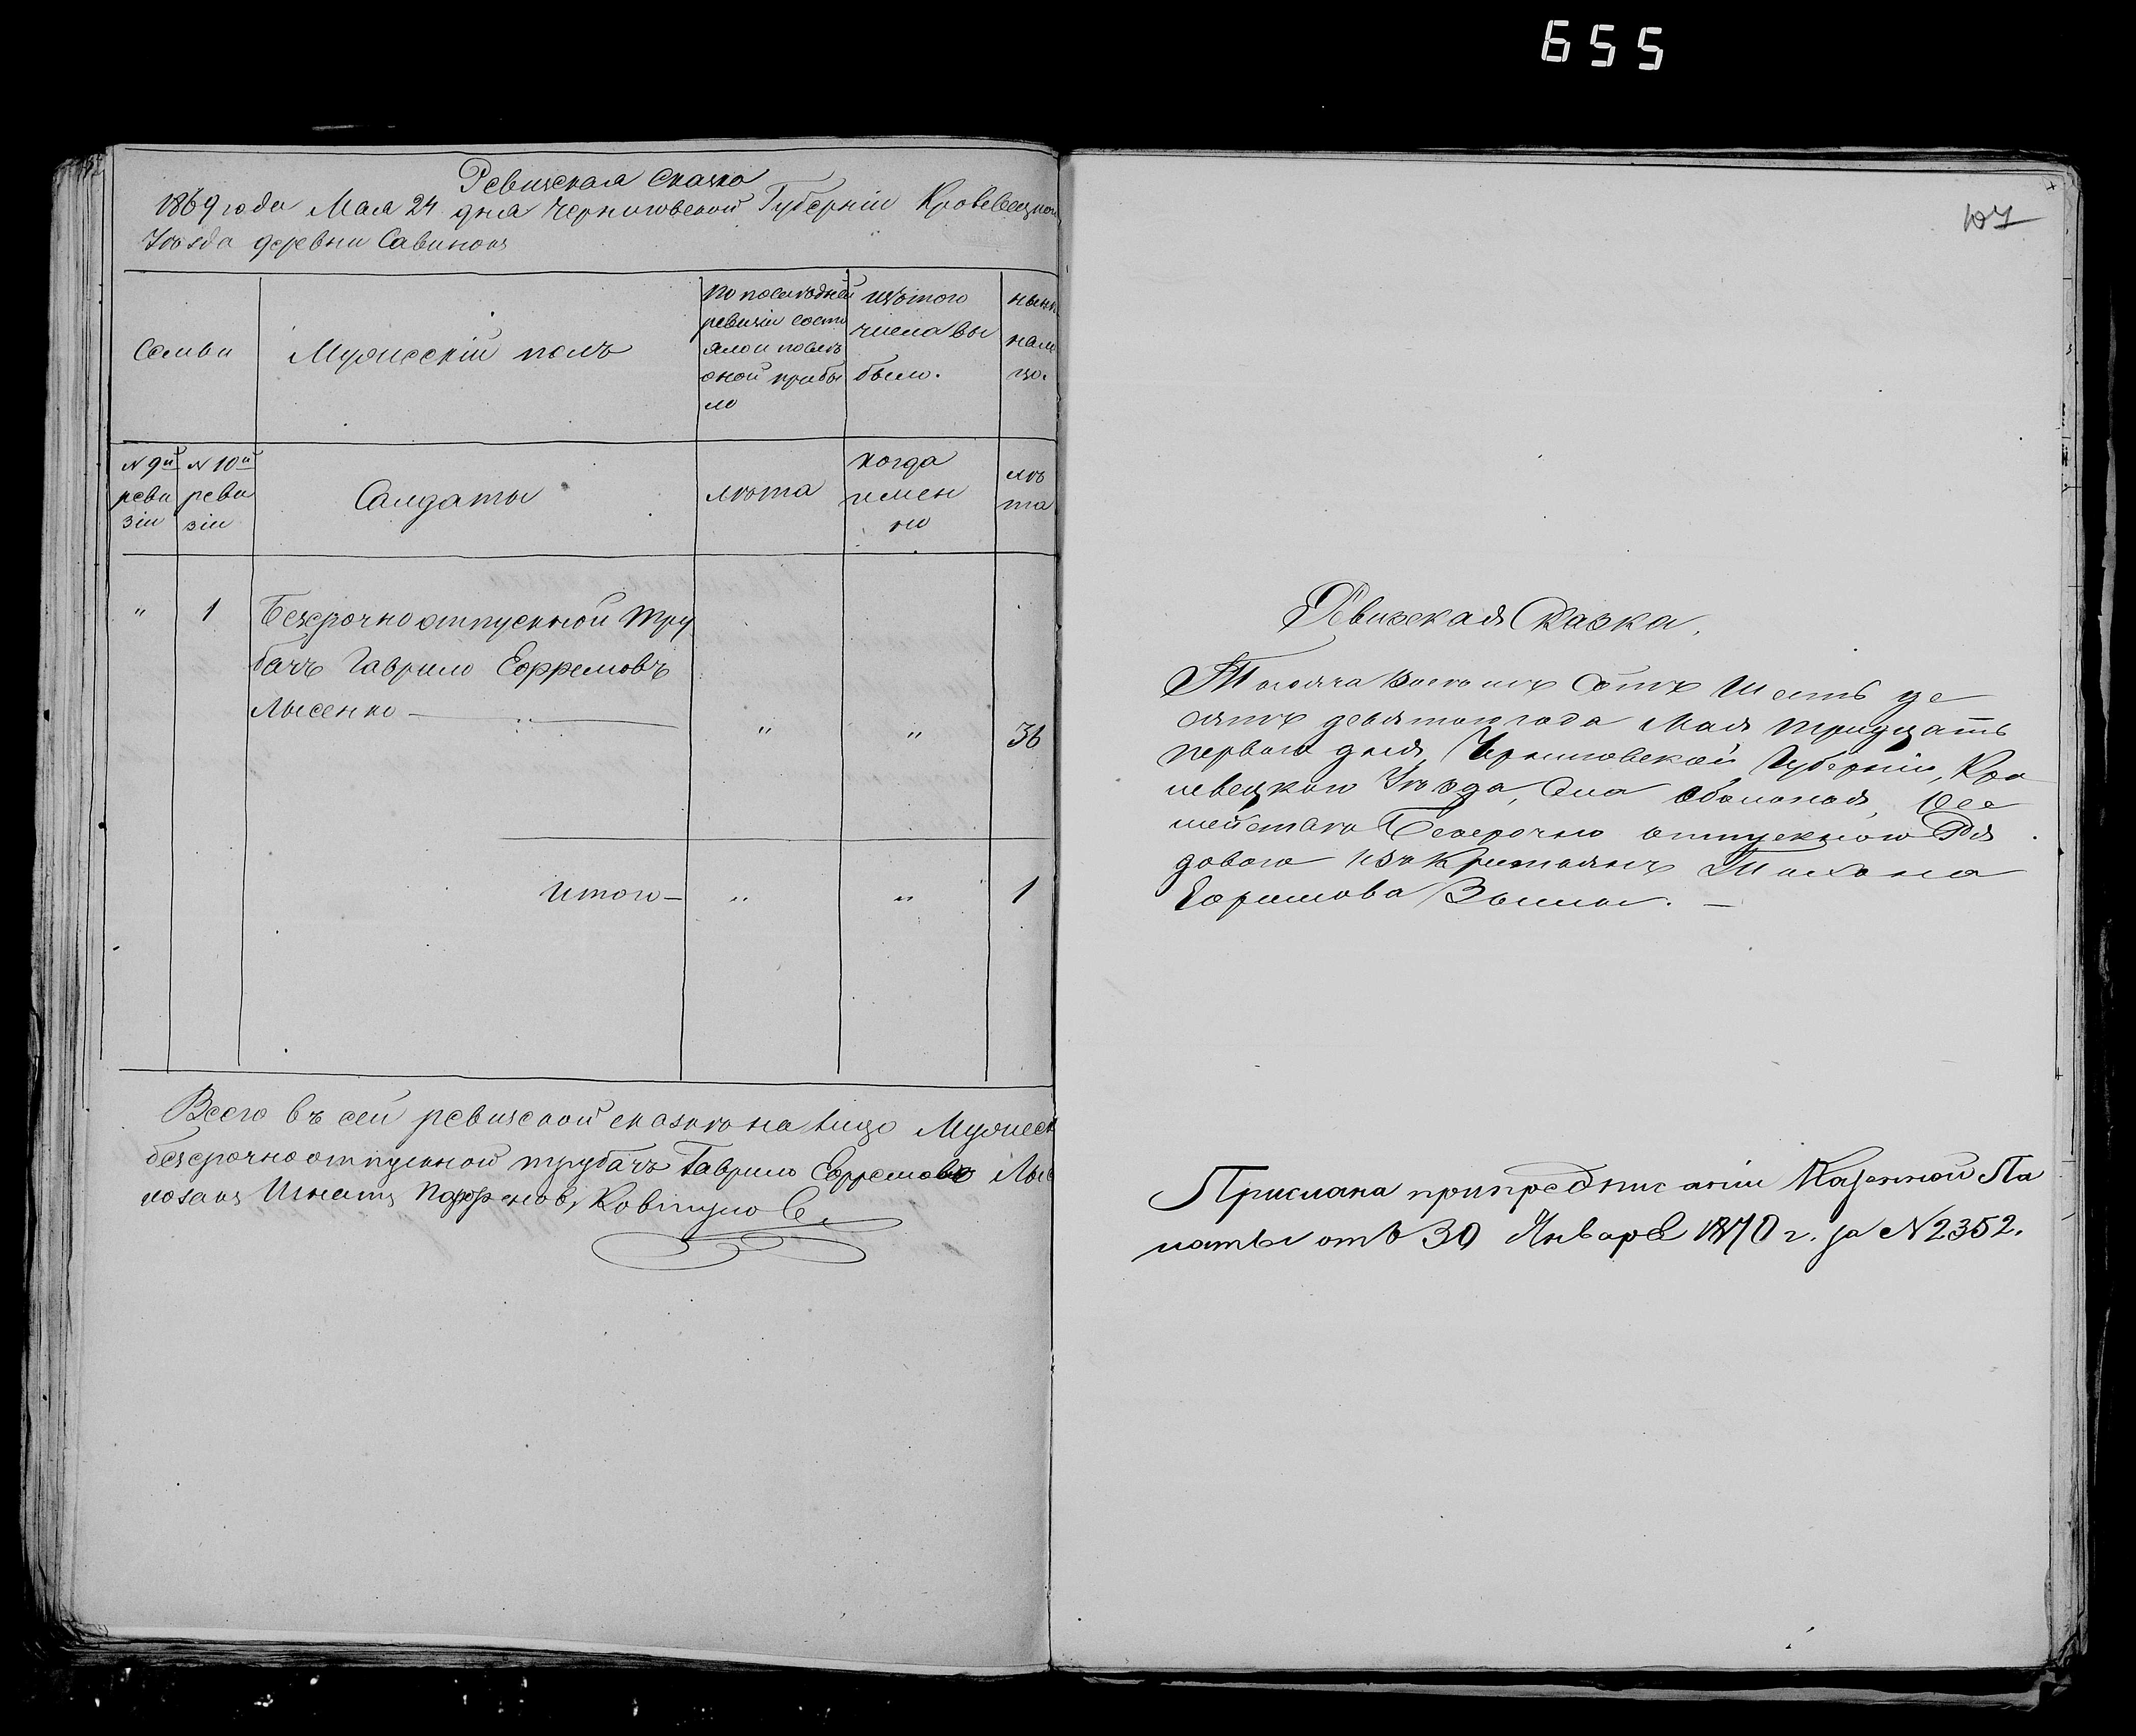 655
Ревизская Сказка
1869 года Мая 24 дня Черниговской Губерніи Кролевецкого
Уѣзда деревни Савинокъ
Семьи
Мужескій полъ
по последней
ревизіи состо
яло и послѣ
оной прибы
ло
изътого
числа вы
было.
нынѣ
нали
цо.
N 9й
реви
зіи
N 10й
реви
зіи
Салдаты
лѣта
когда
имен
но
лѣ
та
" 1 Безсрочно отпускной Тру
бачъ Гаврило Ефремовъ
Лысенко — " " 36
Итого — " " 1
Всего въ сей ревизской сказкѣ на лицо Мужеск
безсрочно отпускной трубачъ Гаврило Ефремовъ Лыс
козакъ Игнатъ Парфеновъ
107
Ревизская Сказка.
Тысяча восемь Сотъ Шесть де
сятъ девятого года Мая тридцать
первого дня, Черниговской Губерніи, Кро
левецкого Уѣзда, Села Оболонья,
Безсрочно отпускного Ря
дового изъ Крестьянъ Тихона
Ефимова —
Прислана припредписаніи Казенной Па
латы отъ 30 Января 1870 г. за N 2352.